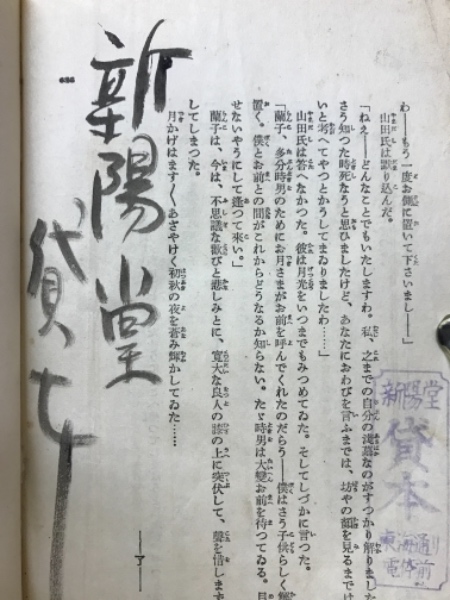 わ――もう一度お側に置いて下さいまし――」
山田氏は黙り込んだ。
「ねえ――どんなことでもいたしますわ。私、之までの自分の浅薄なのがすつかり解りました
さう知つた時死なうと思ひましたけど、あなたにおわびを言ふまでは、坊やの顔を見るまでは
いと考へてやつとかうしてまゐりましたわ……」
山田氏は答へなかつた。彼は月光をいつまでもみつめてゐた。そしてしづかに言つた。
「蘭子、多分時男のためにお月さまがお前を呼んでくれたのだらう――僕はさう子供らしく解
置く。僕とお前との間がこれからどうなるか知らない。たゞ時男は大變お前を待つてゐる。目
せないやうにして逢つて來い。」
蘭子は、今は、不思議な歡びと悲しみとに、寛大な良人の膝の上に突伏して、聲を惜します
してしまつた。
月かげはます〱あざやけく初秋の夜を蒼み輝かしてゐた……
――了――
636
新陽堂
貸本
新陽堂
貸本
東海通り
電停前